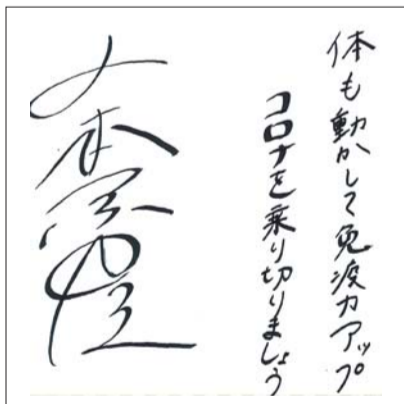 体も動かして免疫力アップ
コロナを乗り切りましょう